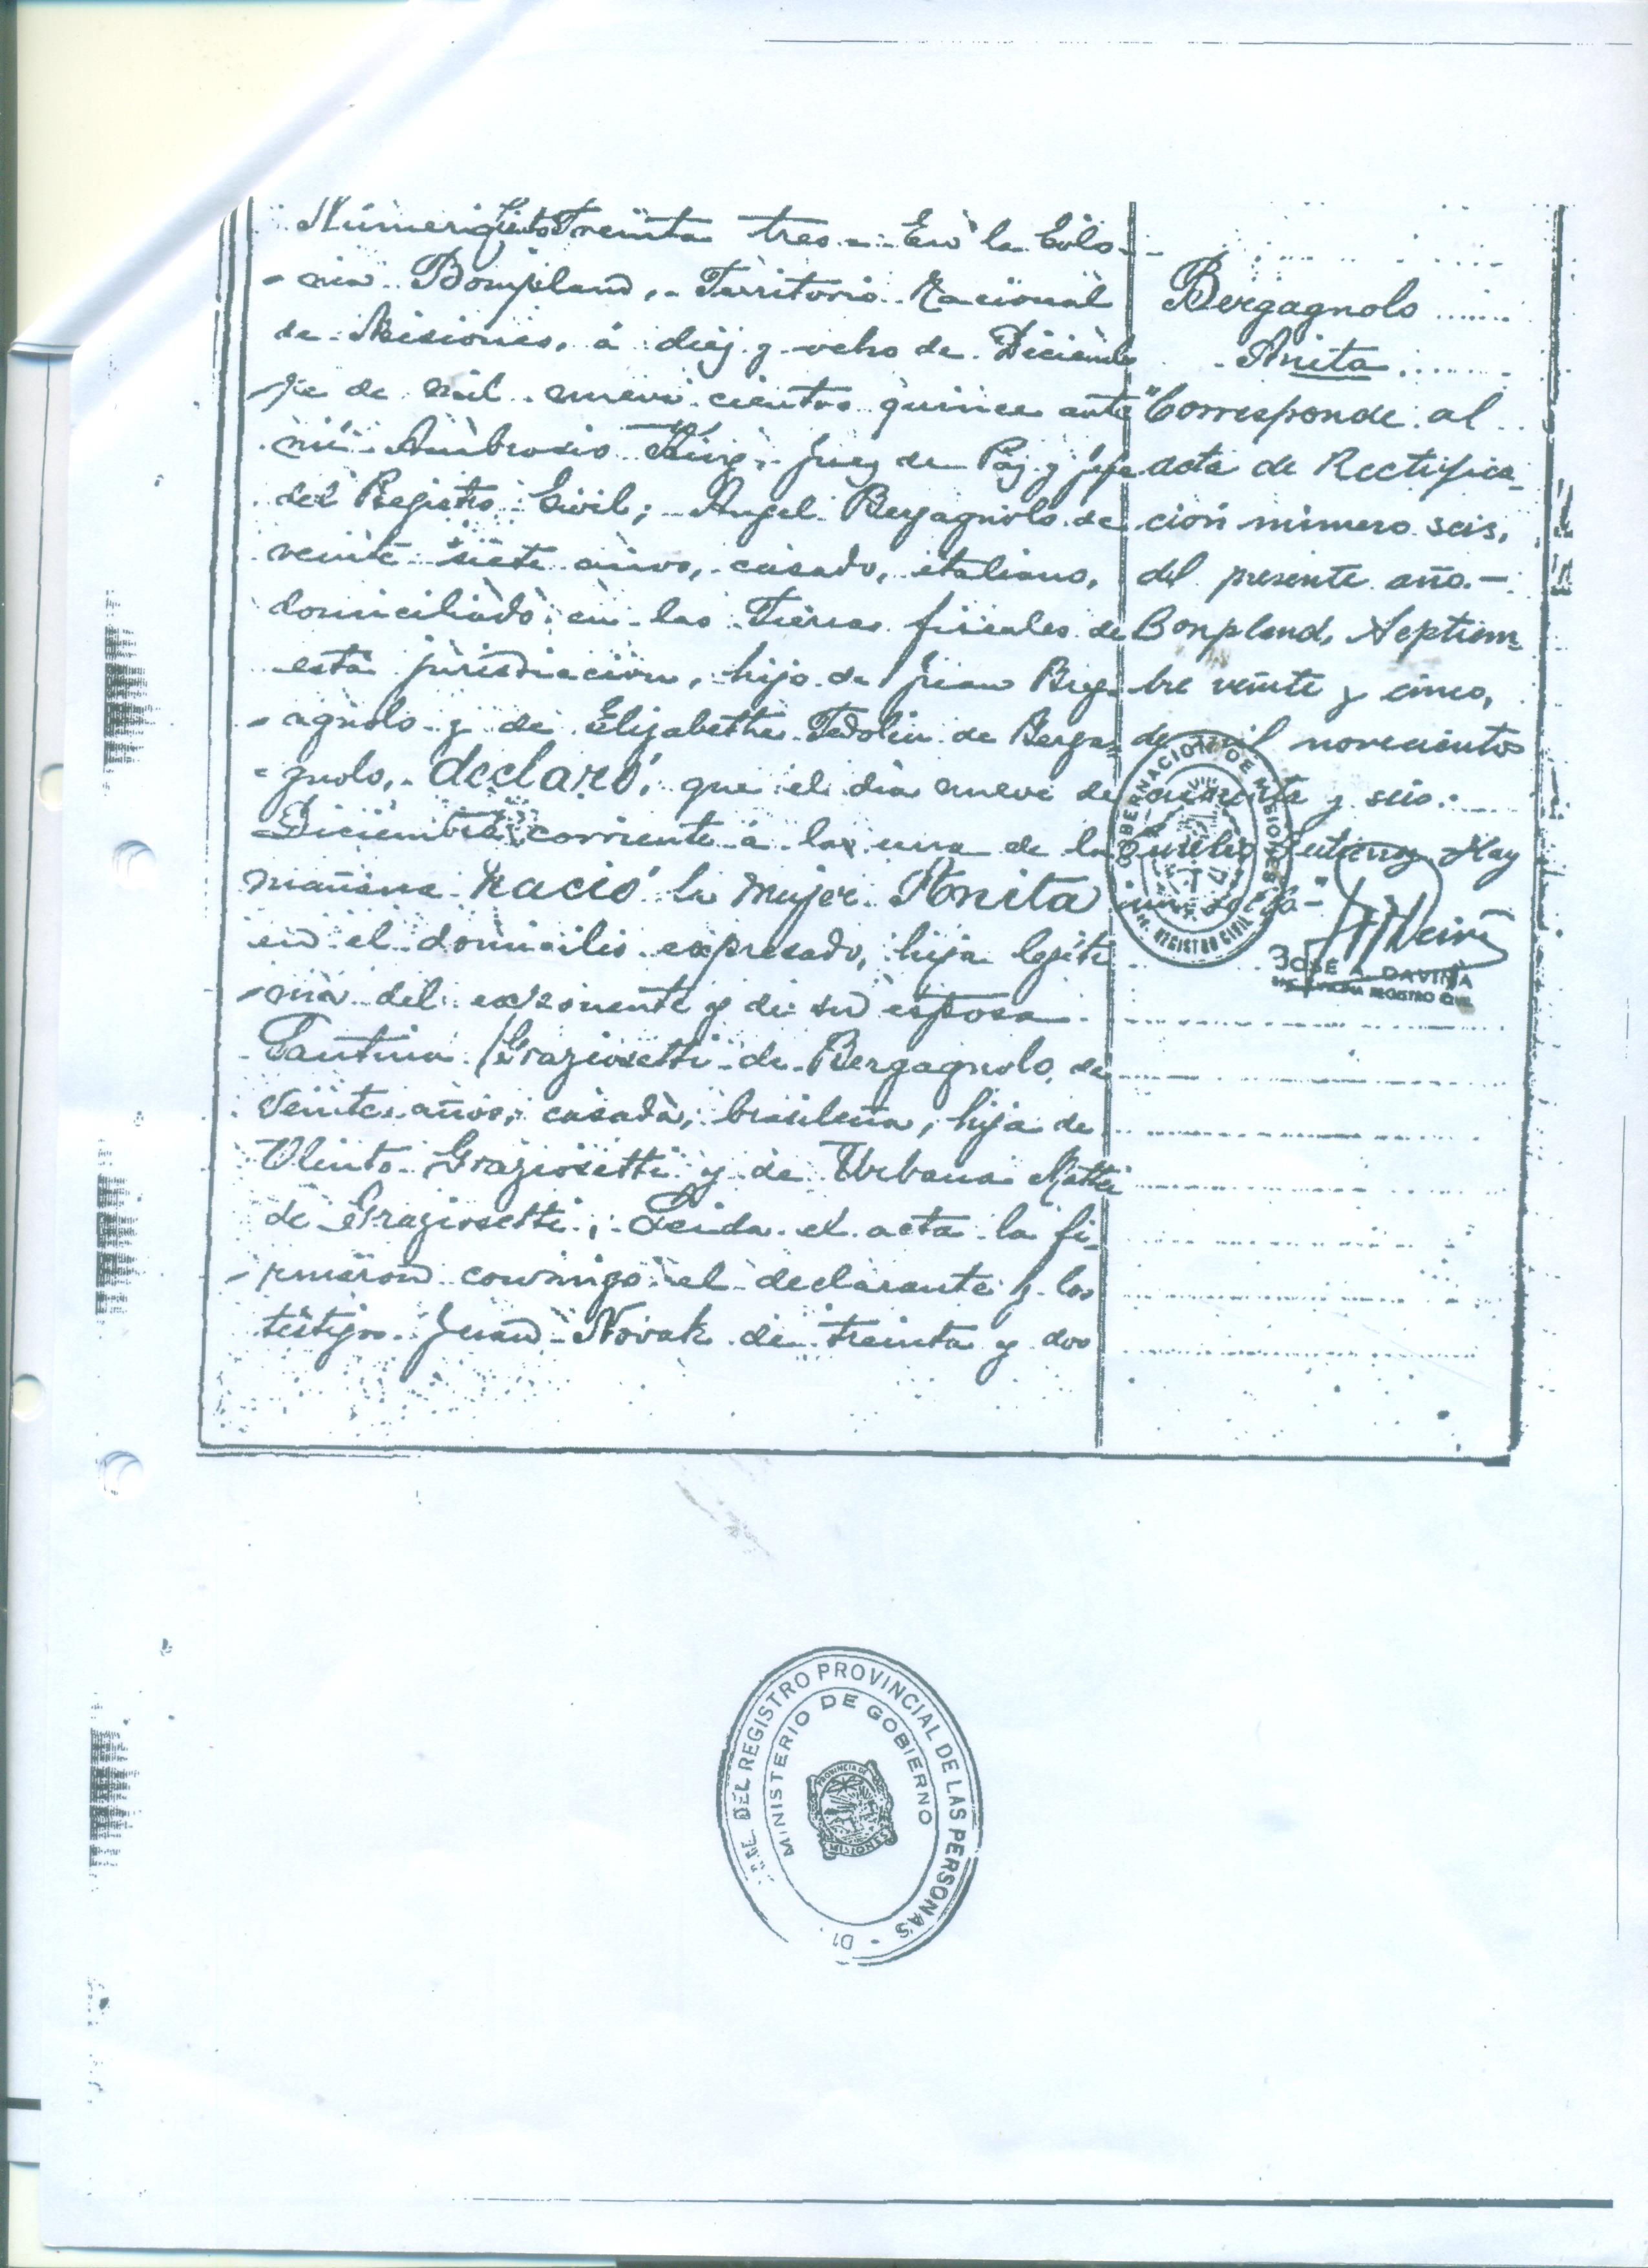 Número Ciento Treinta tres.- En la Colo-
-nia Bompland, Territorio Nacional
de Misiones, á diez y ocho de Diciem
-bre de mil nuevecientos quince ante
mi Ambrosio King, Juez de Paz y jefe
del Registro Civil; Angel Bergagnolo de
veinte siete años, casado, italiano,
domiciliado en las Tierras fiscales de
esta jurisdiccion, hijo de Juan Berg-
-agnolo y de Elizabetha Todolin de Berga-
-gnolo, declaró, que el dia nueve de
Diciembre corriente á las una de la
mañana nació la mujer Anita
en el domicilio expresado, hija legiti
-ma del exponente y de su esposa
Santina Graziosetti de Bergagnolo, de
veinte años, casada, brasileña, hija de
Olinto Graziosetti y de Urbana Mattei
de Graziosetti; Leida el acta la fi-
-rmaron conmigo el declarante y los
testigos Juan Novak de treinta y dos
Bergagnolo
Anita
"Corresponde al
acta de Rectifica-
ción número seis,
del presente año.-
Bonpland, Septiem-
bre veinte y cinco,
de mil novecientos
cuarenta y seis.
Gutierrez Hay
un sello-"
JOSE A. DAVIÑA
OFICINA REGISTRO CIVIL
GOBERNACION DE MISIONES
REGISTRO CIVIL
GRAL. DEL REGISTRO PROVINCIAL DE LAS PERSONAS - D
MINISTERIO DE GOBIERNO
PROVINCIA DE
MISIONES